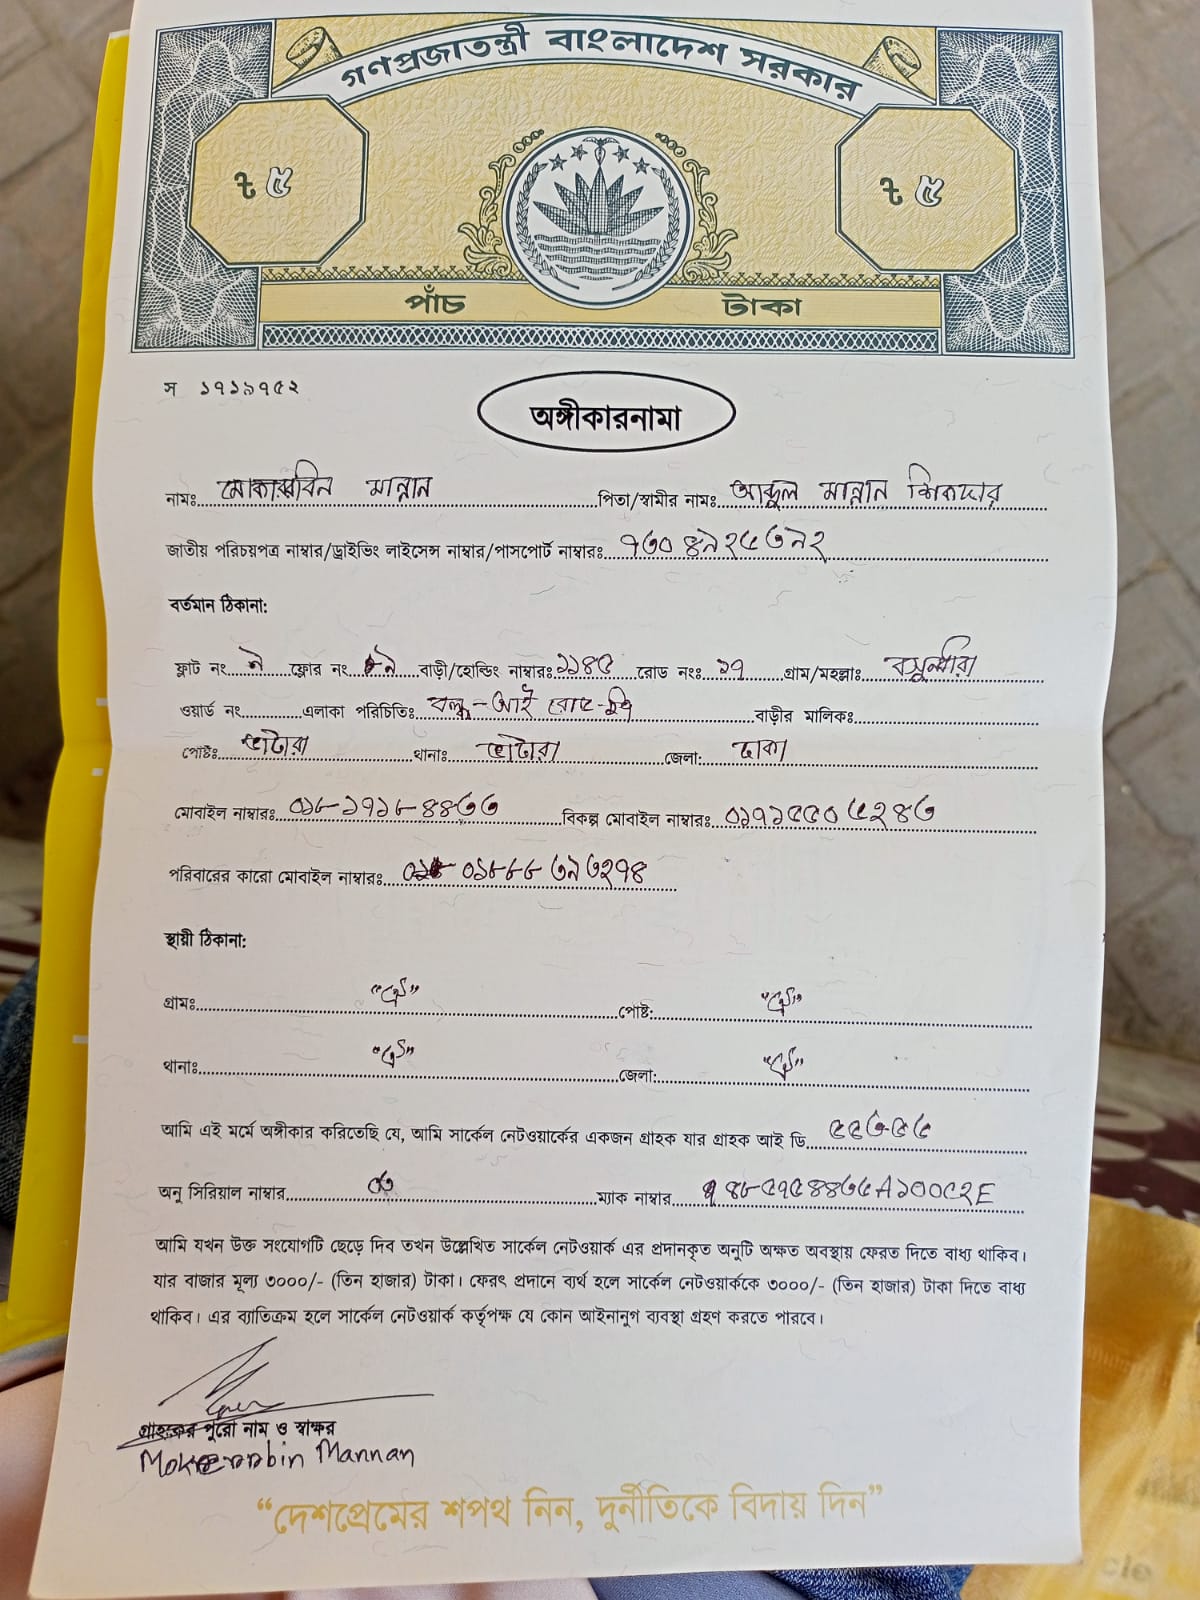 গণপ্রজাতন্ত্রী বাংলাদেশ সরকার
৳ ৫ ৳ ৫
পাঁচ টাকা
স ১৭১৯৭৫২
অঙ্গীকারনামা
নামঃ মান্নান পিতা/স্বামীর নামঃ আব্দুল মান্নান শিকদার
জাতীয় পরিচয়পত্র নাম্বার/ড্রাইভিং লাইসেন্স নাম্বার/পাসপোর্ট নাম্বারঃ ৭৩০৪৯২৫৩৯২
বর্তমান ঠিকানা:
ফ্লাট নং ফ্লোর নং বাড়ী/হোল্ডিং নাম্বারঃ ১১৪৫ রোড নংঃ ১৭ গ্রাম/মহল্লাঃ বসুন্ধরা
ওয়ার্ড নং এলাকা পরিচিতিঃ ব্লক-আই বাড়ীর মালিকঃ
পোষ্টঃ ভাটারা থানাঃ ভাটারা জেলা: ঢাকা
মোবাইল নাম্বারঃ ০১৮-১৭১৮-৪৪৩৩ বিকল্প মোবাইল নাম্বারঃ ০১৭১৫৫০৫২৪৩
পরিবারের কারো মোবাইল নাম্বারঃ ০১৮৮৮৩৯৩২৭৪
স্থায়ী ঠিকানা:
গ্রামঃ "ঐ" পোষ্ট: "ঐ"
থানাঃ "ঐ" জেলা: "ঐ"
আমি এই মর্মে অঙ্গীকার করিতেছি যে, আমি সার্কেল নেটওয়ার্কের একজন গ্রাহক যার গ্রাহক আই ডি
অনু সিরিয়াল নাম্বার ম্যাক নাম্বার
আমি যখন উক্ত সংযোগটি ছেড়ে দিব তখন উল্লেখিত সার্কেল নেটওয়ার্ক এর প্রদানকৃত অনুটি অক্ষত অবস্থায় ফেরত দিতে বাধ্য থাকিব।
যার বাজার মূল্য ৩০০০/- (তিন হাজার) টাকা। ফেরৎ প্রদানে ব্যর্থ হলে সার্কেল নেটওয়ার্ককে ৩০০০/- (তিন হাজার) টাকা দিতে বাধ্য
থাকিব। এর ব্যাতিক্রম হলে সার্কেল নেটওয়ার্ক কর্তৃপক্ষ যে কোন আইনানুগ ব্যবস্থা গ্রহণ করতে পারবে।
গ্রাহকের পুরো নাম ও স্বাক্ষর
Mannan
"দেশপ্রেমের শপথ নিন, দুর্নীতিকে বিদায় দিন"